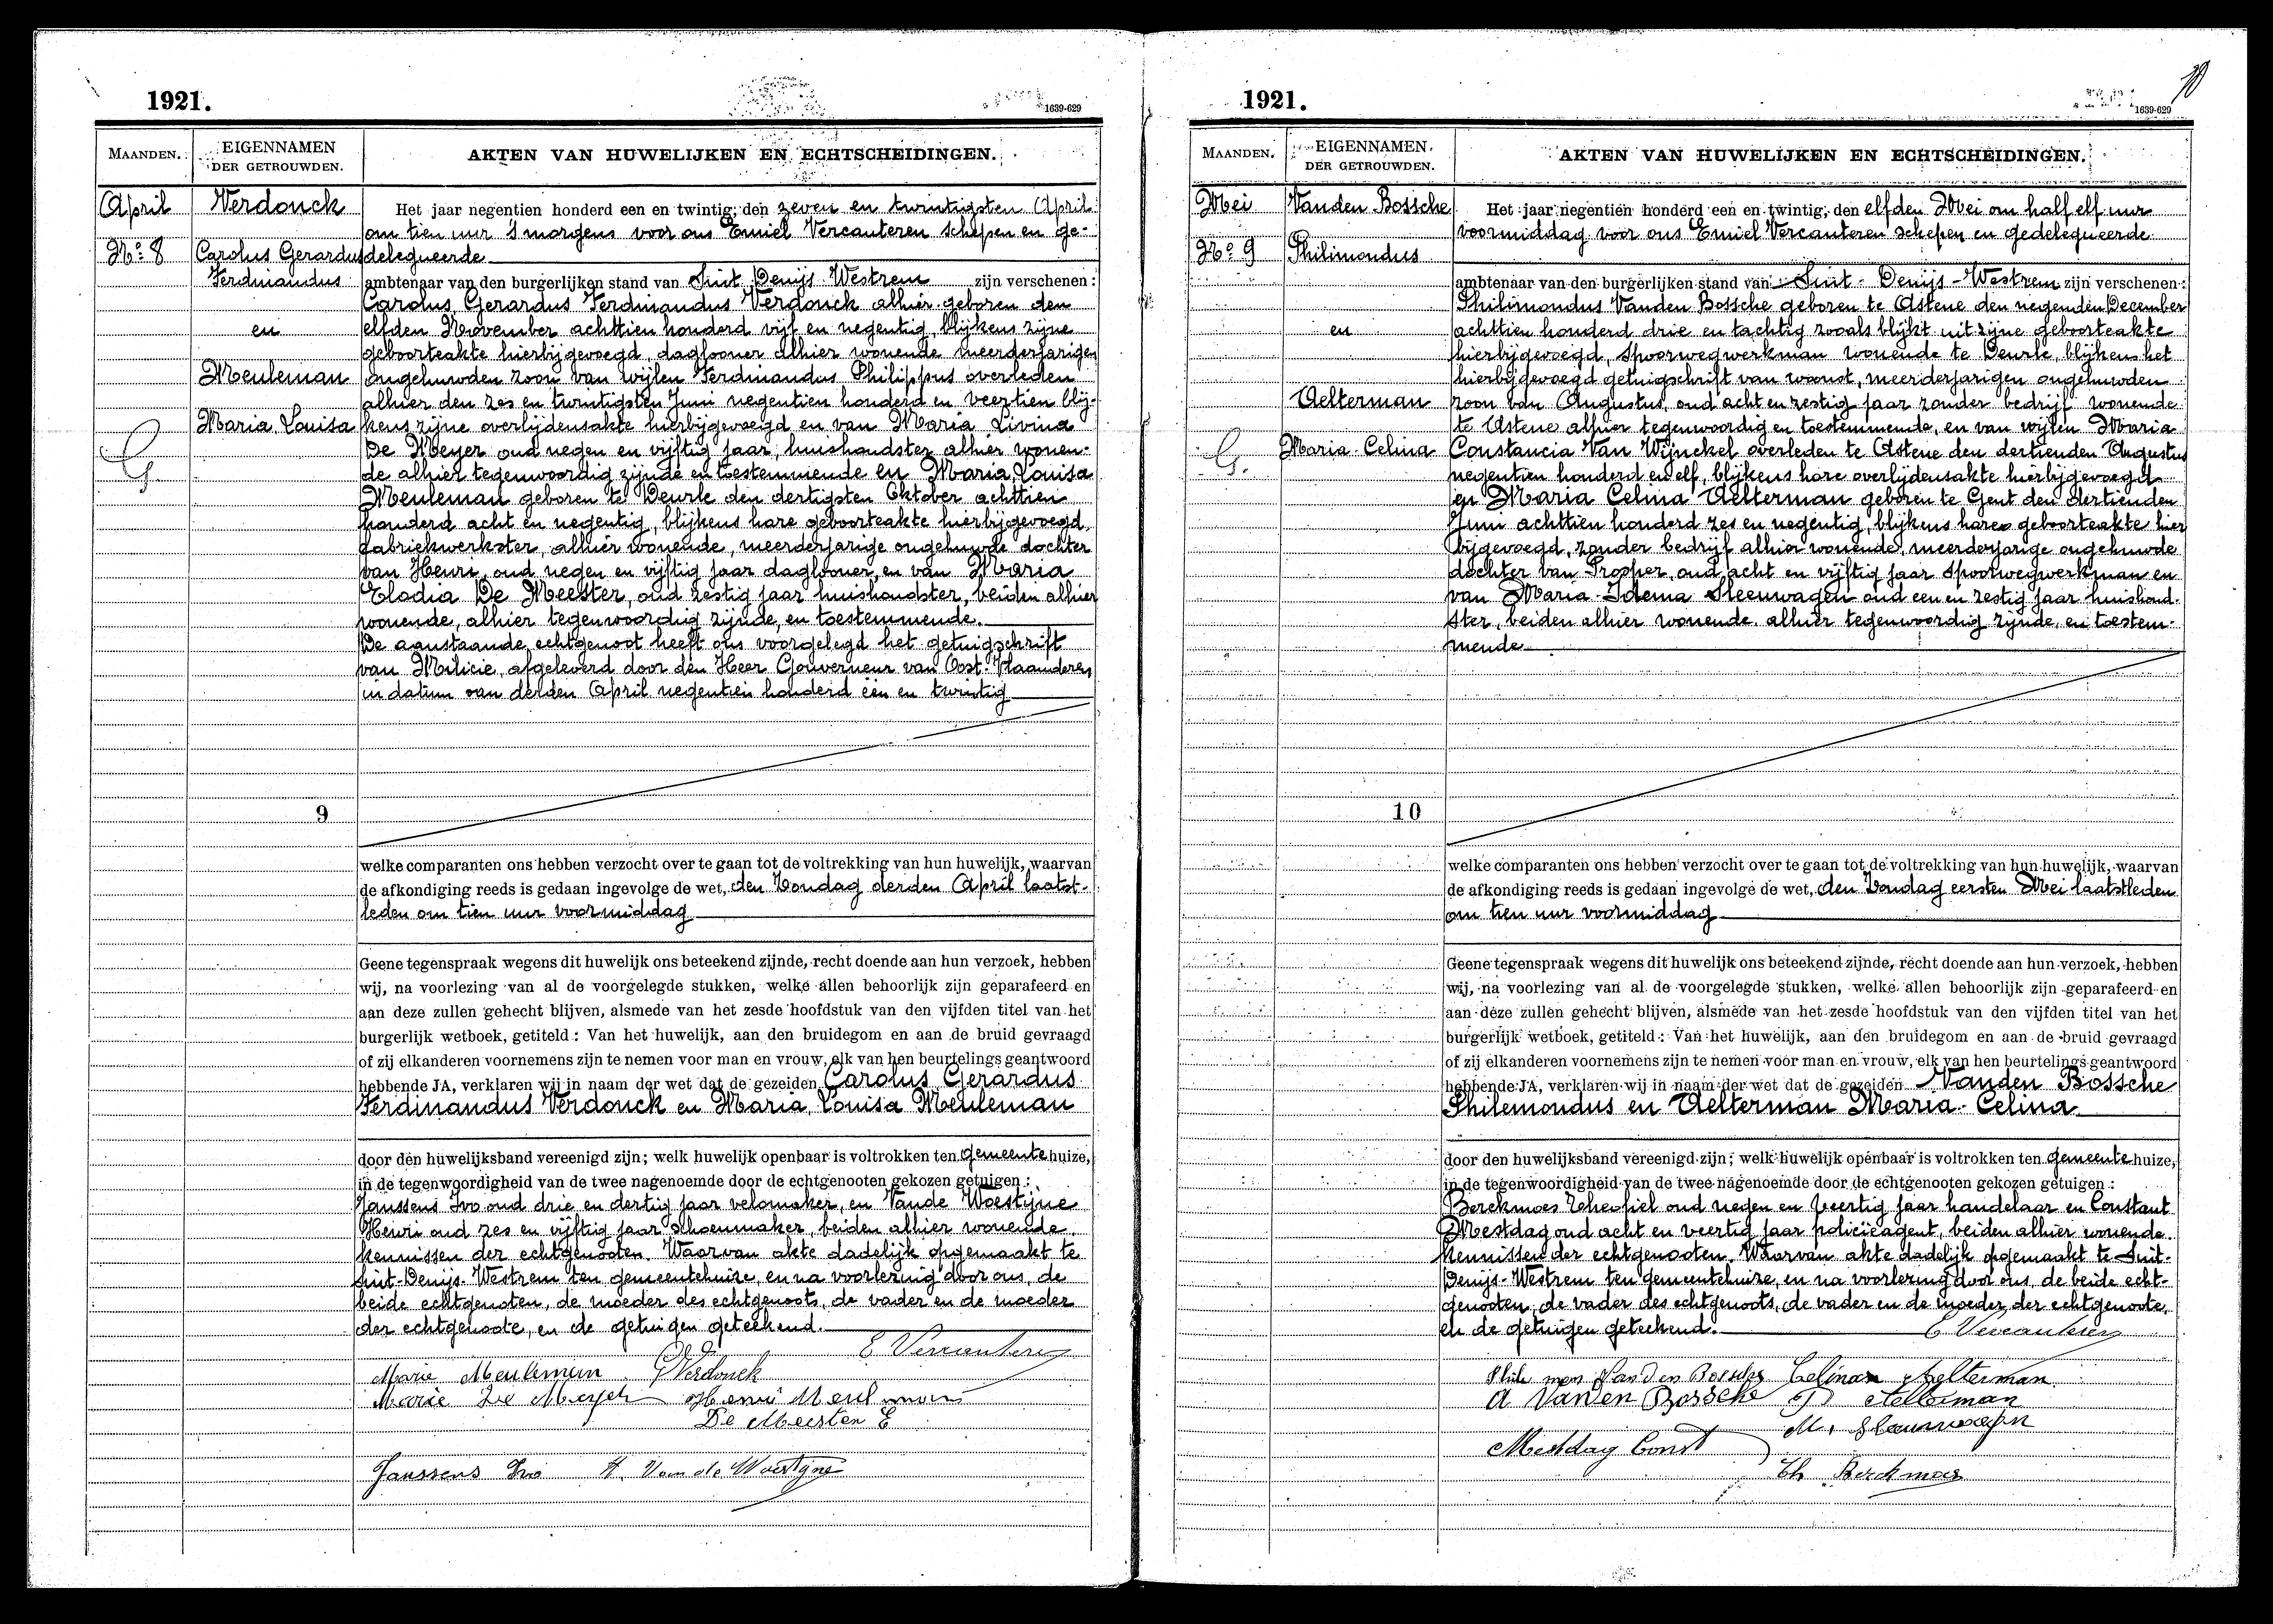 1921.
1639-629
MAANDEN.
EIGENNAMEN
DER GETROUWDEN.
AKTEN VAN HUWELIJKEN EN ECHTSCHEIDINGEN.
April
No 8
Verdonck
Carolus Gerardus
Ferdinandus
en
Meuleman
Maria Louisa
G
9
Het jaar negentien honderd een en twintig, den zeven en twintigsten April
om tien uur 's morgens voor ons Emiel Vercauteren schepen en ge-
delegueerde
ambtenaar van den burgerlijken stand van Sint Denijs Westrem zijn verschenen:
Carolus Gerardus Ferdinandus Verdonck alhier geboren den
elfden November achttien honderd vijf en negentig, blijkens zijne
geboorteakte hierbijgevoegd, daglooner alhier wonende meerderjarigen
ongehuwden zoon van wijlen Ferdinandus Philippus overleden
alhier den zes en twintigsten Juni negentien honderd en veertien blij-
kens zijne overlijdensakte hierbijgevoegd en van Maria Livina
De Meyer oud negen en vijftig jaar, huishoudster alhier wonen-
de alhier tegenwoordig zijnde en toestemmende en Maria Louisa
Meuleman geboren te Deurle den dertigsten Oktober achttien
honderd acht en negentig, blijkens hare geboorteakte hierbijgevoegd,
fabriekwerkster, alhier wonende, meerderjarige ongehuwde dochter
van Henri, oud negen en vijftig jaar daglooner, en van Maria
Elodia De Meester, oud zestig jaar huishoudster, beiden alhier
wonende, alhier tegenwoordig zijnde, en toestemmende.
De aanstaande echtgenoot heeft ons voorgelegd het getuigschrift
van Milicie, afgeleverd door den Heer Gouverneur van Oost-Vlaanderen,
in datum van derden April negentien honderd een en twintig
welke comparanten ons hebben verzocht over te gaan tot de voltrekking van hun huwelijk, waarvan
de afkondiging reeds is gedaan ingevolge de wet, den Zondag derden April laatst-
leden om tien uur voormiddag
Geene tegenspraak wegens dit huwelijk ons beteekend zijnde, recht doende aan hun verzoek, hebben
wij, na voorlezing van al de voorgelegde stukken, welke allen behoorlijk zijn geparafeerd en
aan deze zullen gehecht blijven, alsmede van het zesde hoofdstuk van den vijfden titel van het
burgerlijk wetboek, getiteld: Van het huwelijk, aan den bruidegom en aan de bruid gevraagd
of zij elkanderen voornemens zijn te nemen voor man en vrouw, elk van hen beurtelings geantwoord
hebbende JA, verklaren wij in naam der wet dat de gezeiden Carolus Gerardus
Ferdinandus Verdonck en Maria Louisa Meuleman
door den huwelijksband vereenigd zijn; welk huwelijk openbaar is voltrokken ten gemeentehuize,
in de tegenwoordigheid van de twee nagenoemde door de echtgenooten gekozen getuigen:
Janssens Ivo oud drie en dertig jaar velomaker, en Vande Woestijne
Henri oud zes en vijftig jaar schoenmaker, beiden alhier wonende
kennissen der echtgenooten. Waarvan akte dadelijk opgemaakt te
Sint-Denijs-Westrem ten gemeentehuize, en na voorlezing door ons, de
beide echtgenoten, de moeder des echtgenoots, de vader en de moeder
der echtgenoote, en de getuigen geteekend.
E Vercauteren
Marie Meuleman G Verdonck
Marie De Meyer Henri Meulman
De Meester E
Janssens Ivo H. Van de Woestijne
1921.
10
1639-629
MAANDEN.
EIGENNAMEN
DER GETROUWDEN.
AKTEN VAN HUWELIJKEN EN ECHTSCHEIDINGEN.
Mei
No 9
Vanden Bossche
Philimondus
en
Aelterman
Maria-Celina
G.
10
Het jaar negentien honderd een en twintig, den elfden Mei om half elf uur
voormiddag voor ons Emiel Vercauteren schepen en gedelegueerde
ambtenaar van den burgerlijken stand van Sint-Denijs-Westrem zijn verschenen:
Philimondus Vanden Bossche geboren te Astene den negenden December
achttien honderd drie en tachtig zooals blijkt uit zijne geboorteakte
hierbijgevoegd, spoorwegwerkman wonende te Deurle, blijkens het
hierbijgevoegd getuigschrift van woonst, meerderjarigen ongehuwden
zoon van Augustus, oud acht en zestig jaar zonder bedrijf wonende
te Astene alhier tegenwoordig en toestemmende, en van wijlen Maria
Constancia Van Wijnckel overleden te Astene den dertienden Augustus
negentien honderd en elf, blijkens hare overlijdensakte hierbijgevoegd
en Maria Celina Aelterman geboren te Gent den dertienden
Juni achttien honderd zes en negentig, blijkens hare geboorteakte hier
bijgevoegd, zonder bedrijf alhier wonende, meerderjarige ongehuwde
dochter van Prosper, oud acht en vijftig jaar spoorwegwerkman en
van Maria-Idema Sleeuwagen oud een en zestig jaar huishoud-
ster, beiden alhier wonende, alhier tegenwoordig zijnde, en toestem-
mende
welke comparanten ons hebben verzocht over te gaan tot de voltrekking van hun huwelijk, waarvan
de afkondiging reeds is gedaan ingevolge de wet, den Zondag eersten Mei laatstleden
om tien uur voormiddag
Geene tegenspraak wegens dit huwelijk ons beteekend zijnde, recht doende aan hun verzoek, hebben
wij, na voorlezing van al de voorgelegde stukken, welke allen behoorlijk zijn geparafeerd en
aan deze zullen gehecht blijven, alsmede van het zesde hoofdstuk van den vijfden titel van het
burgerlijk wetboek, getiteld: Van het huwelijk, aan den bruidegom en aan de bruid gevraagd
of zij elkanderen voornemens zijn te nemen voor man en vrouw, elk van hen beurtelings geantwoord
hebbende JA, verklaren wij in naam der wet dat de gezeiden Vanden Bossche
Philemondus en Aelterman Maria-Celina
door den huwelijksband vereenigd zijn; welk huwelijk openbaar is voltrokken ten gemeentehuize,
in de tegenwoordigheid van de twee nagenoemde door de echtgenooten gekozen getuigen:
Berckmoes Theofiel oud negen en veertig jaar handelaar en Constant
Mestdag oud acht en veertig jaar policieagent, beiden alhier wonende
kennissen der echtgenooten. Waarvan akte dadelijk opgemaakt te Sint-
Denijs-Westrem ten gemeentehuize, en na voorlezing door ons, de beide echt-
genooten, de vader des echtgenoots, de vader en de moeder der echtgenoote,
en de getuigen geteekend.
E Vercauteren
Philemon Vanden Bossche Celina Aelterman
A Vanden Bossche P Aelterman
M. Sleeuwaegen
Mestdag Const
Th Berckmoes